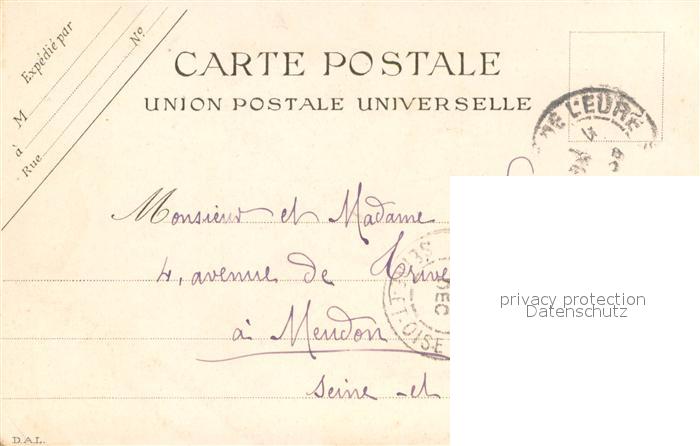 Expédié par
M
à
Rue
No
CARTE POSTALE
UNION POSTALE UNIVERSELLE
DE L'EURE
Monsieur et Madame
4, avenue de Trive
à Meudon
Seine-et
SEINE-ET-OISE
DEC
privacy protection
Datenschutz
D.A.L.